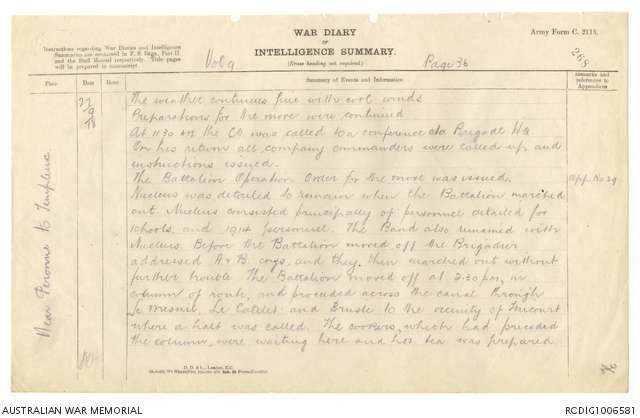 WAR DIARY
OR
INTELLIGENCE SUMMARY.
(Erase heading not required.)
Army Form C. 2118.
Instructions regarding War Diaries and Intelligence
Summaries are contained in F. S. Regs., Part II.
and the Staff Manual respectively. Title pages
will be prepared in manuscript.
Vol 9
Page 36
268
Place
Date
Hour
Summary of Events and Information
Remarks and
references to
Appendices
Near Peronne to Templeux
27/9/18
The weather continues fine with cool winds
Preparations for the move were continued
At 1130 the CO was called to a conference at Brigade HQ
On his return all company commanders were called up and
instructions issued.
The Battalion Operation Order for the move was issued.
App. No 29
Nucleus was detailed to remain when the Battalion marched
out. Nucleus consisted principally of personnel detailed for
schools, and 1914 personnel. The Band also remained with
Nucleus. Before the Battalion moved off the Brigadier
addressed A & B coys, and they then marched out without
further trouble The Battalion moved off at 3.30 pm, in
column of route, and proceeded across the canal through
Le Mesnil, Le Catelet and Brusle to the vicinity of Tincourt
where a halt was called. The cookers, which had preceded
the column, were waiting here and hot tea was prepared
D. D. & L., London, E.C.
AUSTRALIAN WAR MEMORIAL
RCDIG1006581